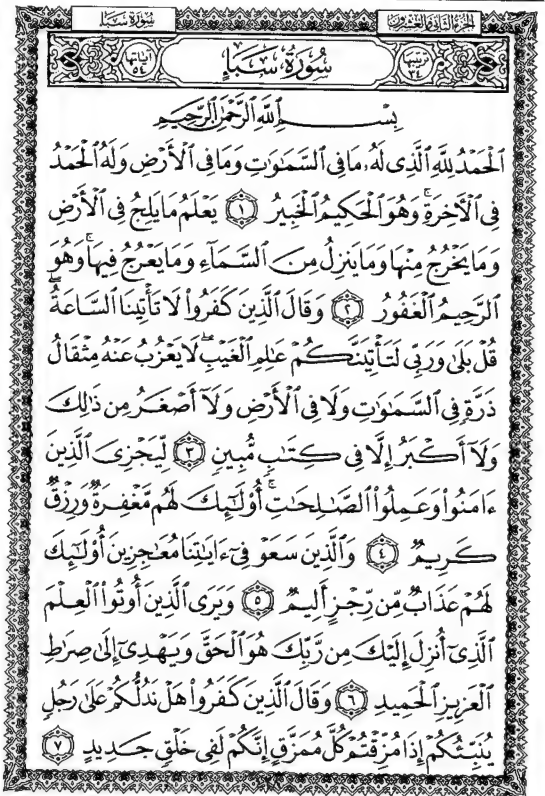 الجزء الثاني والعشرون
سورة سبإ
ترتيبها ٣٤
سُورَةُ سَبَإٍ
آياتها ٥٤
بِسْمِ ٱللَّهِ ٱلرَّحْمَٰنِ ٱلرَّحِيمِ
ٱلْحَمْدُ لِلَّهِ ٱلَّذِى لَهُۥ مَا فِى ٱلسَّمَٰوَٰتِ وَمَا فِى ٱلْأَرْضِ وَلَهُ ٱلْحَمْدُ
فِى ٱلْـَٔاخِرَةِ ۚ وَهُوَ ٱلْحَكِيمُ ٱلْخَبِيرُ ١ يَعْلَمُ مَا يَلِجُ فِى ٱلْأَرْضِ
وَمَا يَخْرُجُ مِنْهَا وَمَا يَنزِلُ مِنَ ٱلسَّمَآءِ وَمَا يَعْرُجُ فِيهَا ۚ وَهُوَ
ٱلرَّحِيمُ ٱلْغَفُورُ ٢ وَقَالَ ٱلَّذِينَ كَفَرُوا۟ لَا تَأْتِينَا ٱلسَّاعَةُ ۖ
قُلْ بَلَىٰ وَرَبِّى لَتَأْتِيَنَّكُمْ عَٰلِمِ ٱلْغَيْبِ ۖ لَا يَعْزُبُ عَنْهُ مِثْقَالُ
ذَرَّةٍ فِى ٱلسَّمَٰوَٰتِ وَلَا فِى ٱلْأَرْضِ وَلَآ أَصْغَرُ مِن ذَٰلِكَ
وَلَآ أَكْبَرُ إِلَّا فِى كِتَٰبٍ مُّبِينٍ ٣ لِّيَجْزِىَ ٱلَّذِينَ
ءَامَنُوا۟ وَعَمِلُوا۟ ٱلصَّٰلِحَٰتِ ۚ أُو۟لَٰٓئِكَ لَهُم مَّغْفِرَةٌ وَرِزْقٌ
كَرِيمٌ ٤ وَٱلَّذِينَ سَعَوْ فِىٓ ءَايَٰتِنَا مُعَٰجِزِينَ أُو۟لَٰٓئِكَ
لَهُمْ عَذَابٌ مِّن رِّجْزٍ أَلِيمٌ ٥ وَيَرَى ٱلَّذِينَ أُوتُوا۟ ٱلْعِلْمَ
ٱلَّذِىٓ أُنزِلَ إِلَيْكَ مِن رَّبِّكَ هُوَ ٱلْحَقَّ وَيَهْدِىٓ إِلَىٰ صِرَٰطِ
ٱلْعَزِيزِ ٱلْحَمِيدِ ٦ وَقَالَ ٱلَّذِينَ كَفَرُوا۟ هَلْ نَدُلُّكُمْ عَلَىٰ رَجُلٍ
يُنَبِّئُكُمْ إِذَا مُزِّقْتُمْ كُلَّ مُمَزَّقٍ إِنَّكُمْ لَفِى خَلْقٍ جَدِيدٍ ٧